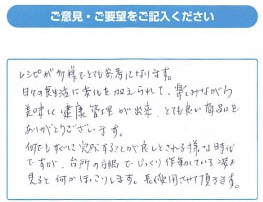 ご意見・ご要望をご記入ください
レシピが多様でとても参考になります。
日々の食生活に変化を加えられて、楽しみながら
美味しく健康管理が出来、とても良い商品を
ありがとうございます。
何でもすぐに完成することが良しとされる様な時代
ですが、台所の片隅でじっくり作動している姿を
見ると何かほっこりします。長く使用させて頂きます。